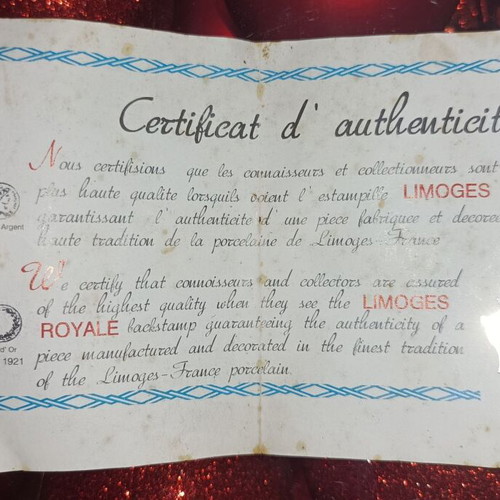 Certificat d' authenticit
Nous certifisions que les connaisseurs et collectionneurs sont
plus haute qualite lorsquils voient l' estampille LIMOGES
garantissant l' authenticite d' une piece fabriquee et decoree
haute tradition de la porcelaine de Limoges-France
Argent
We certify that connoisseurs and collectors are assured
of the highest quality when they see the LIMOGES
ROYALE backstamp guaranteeing the authenticity of a
piece manufactured and decorated in the finest tradition
of the Limoges-France porcelain.
d'Or
1921